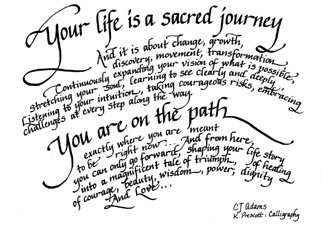 Your life is a sacred journey
And it is about change, growth,
discovery, movement, transformation
Continuously expanding your vision of what is possible,
stretching your soul, learning to see clearly and deeply,
Listening to your intuition, taking courageous risks, embracing
challenges at every step along the way
You are on the path
exactly where you are meant
to be right now... And from here,
you can only go forward, shaping your life story
into a magnificent tale of triumph, of healing
of courage, beauty, wisdom, power, dignity
And Love...
CJ Adams
K. Prescott: Calligraphy